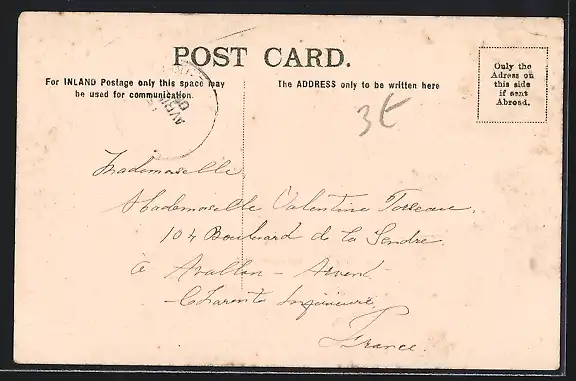 POST CARD.
For INLAND Postage only this space may
be used for communication.
The ADDRESS only to be written here
Only the
Adress on
this side
if sent
Abroad.
3€
Mademoiselle
Mademoiselle Valentine
104 Boulevard de la
à Avallon – Arvert
– Charente Inférieure
France.